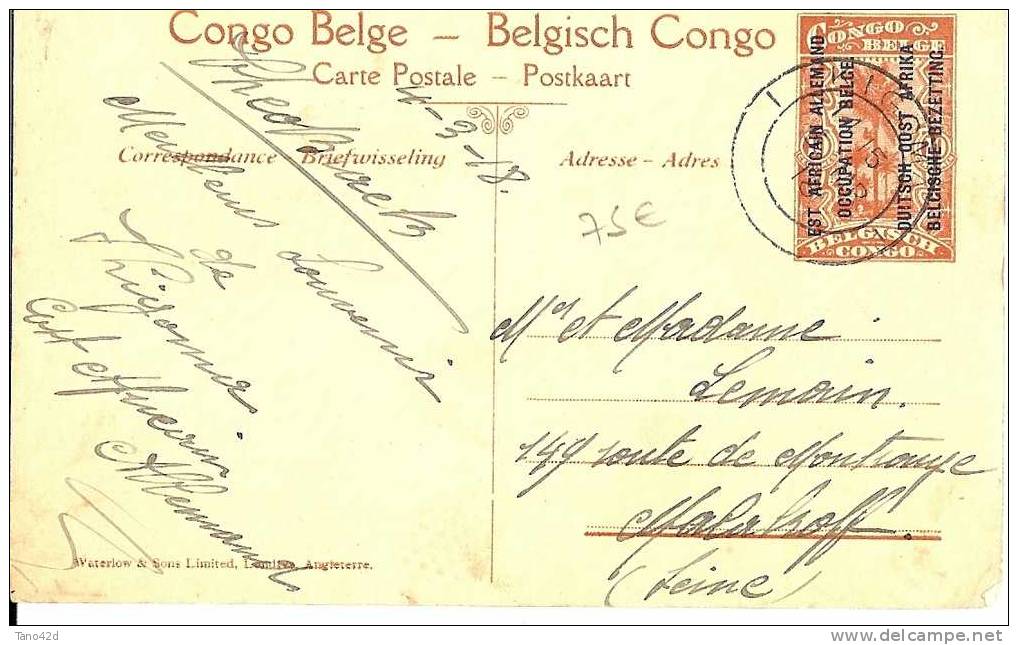 Congo Belge – Belgisch Congo
Carte Postale – Postkaart
Correspondance Briefwisseling
Adresse – Adres
CONGO BELGE
EST AFRICAIN ALLEMAND
OCCUPATION BELGE
DUITSCH OOST AFRIKA
BELGISCHE BEZETTING
BELGISCH CONGO
KIGOMA
15
18
4-3-18.
75€
Meilleurs souvenir
de
Kigoma
Est Africain
Allemand
Mr et Madame
Lemoin.
149 route de Montrouge
Malakoff.
(Seine)
Waterlow & Sons Limited, Londres, Angleterre.
Tano42d
delcampe.net